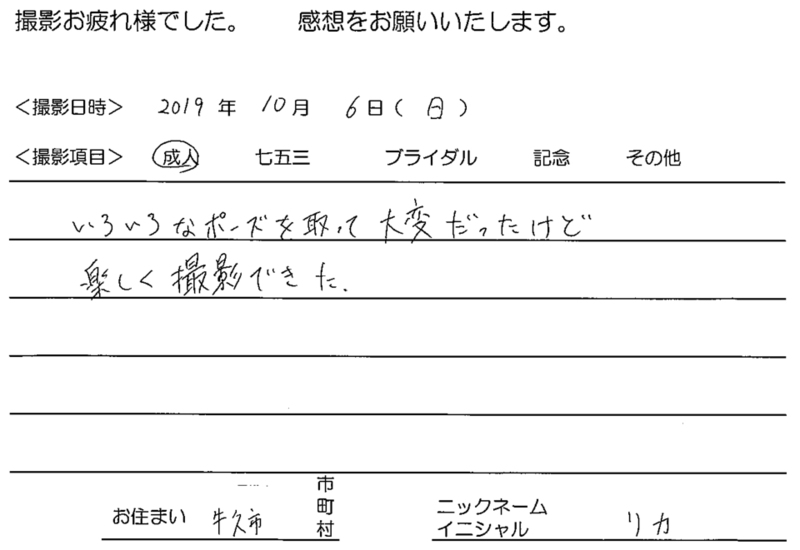 撮影お疲れ様でした。　感想をお願いいたします。
＜撮影日時＞ 2019 年 10 月 6 日（ 日 ）
＜撮影項目＞ 成人 七五三 ブライダル 記念 その他
いろいろなポーズを取って大変だったけど
楽しく撮影できた.
お住まい 牛久市 市町村 ニックネーム イニシャル リカ